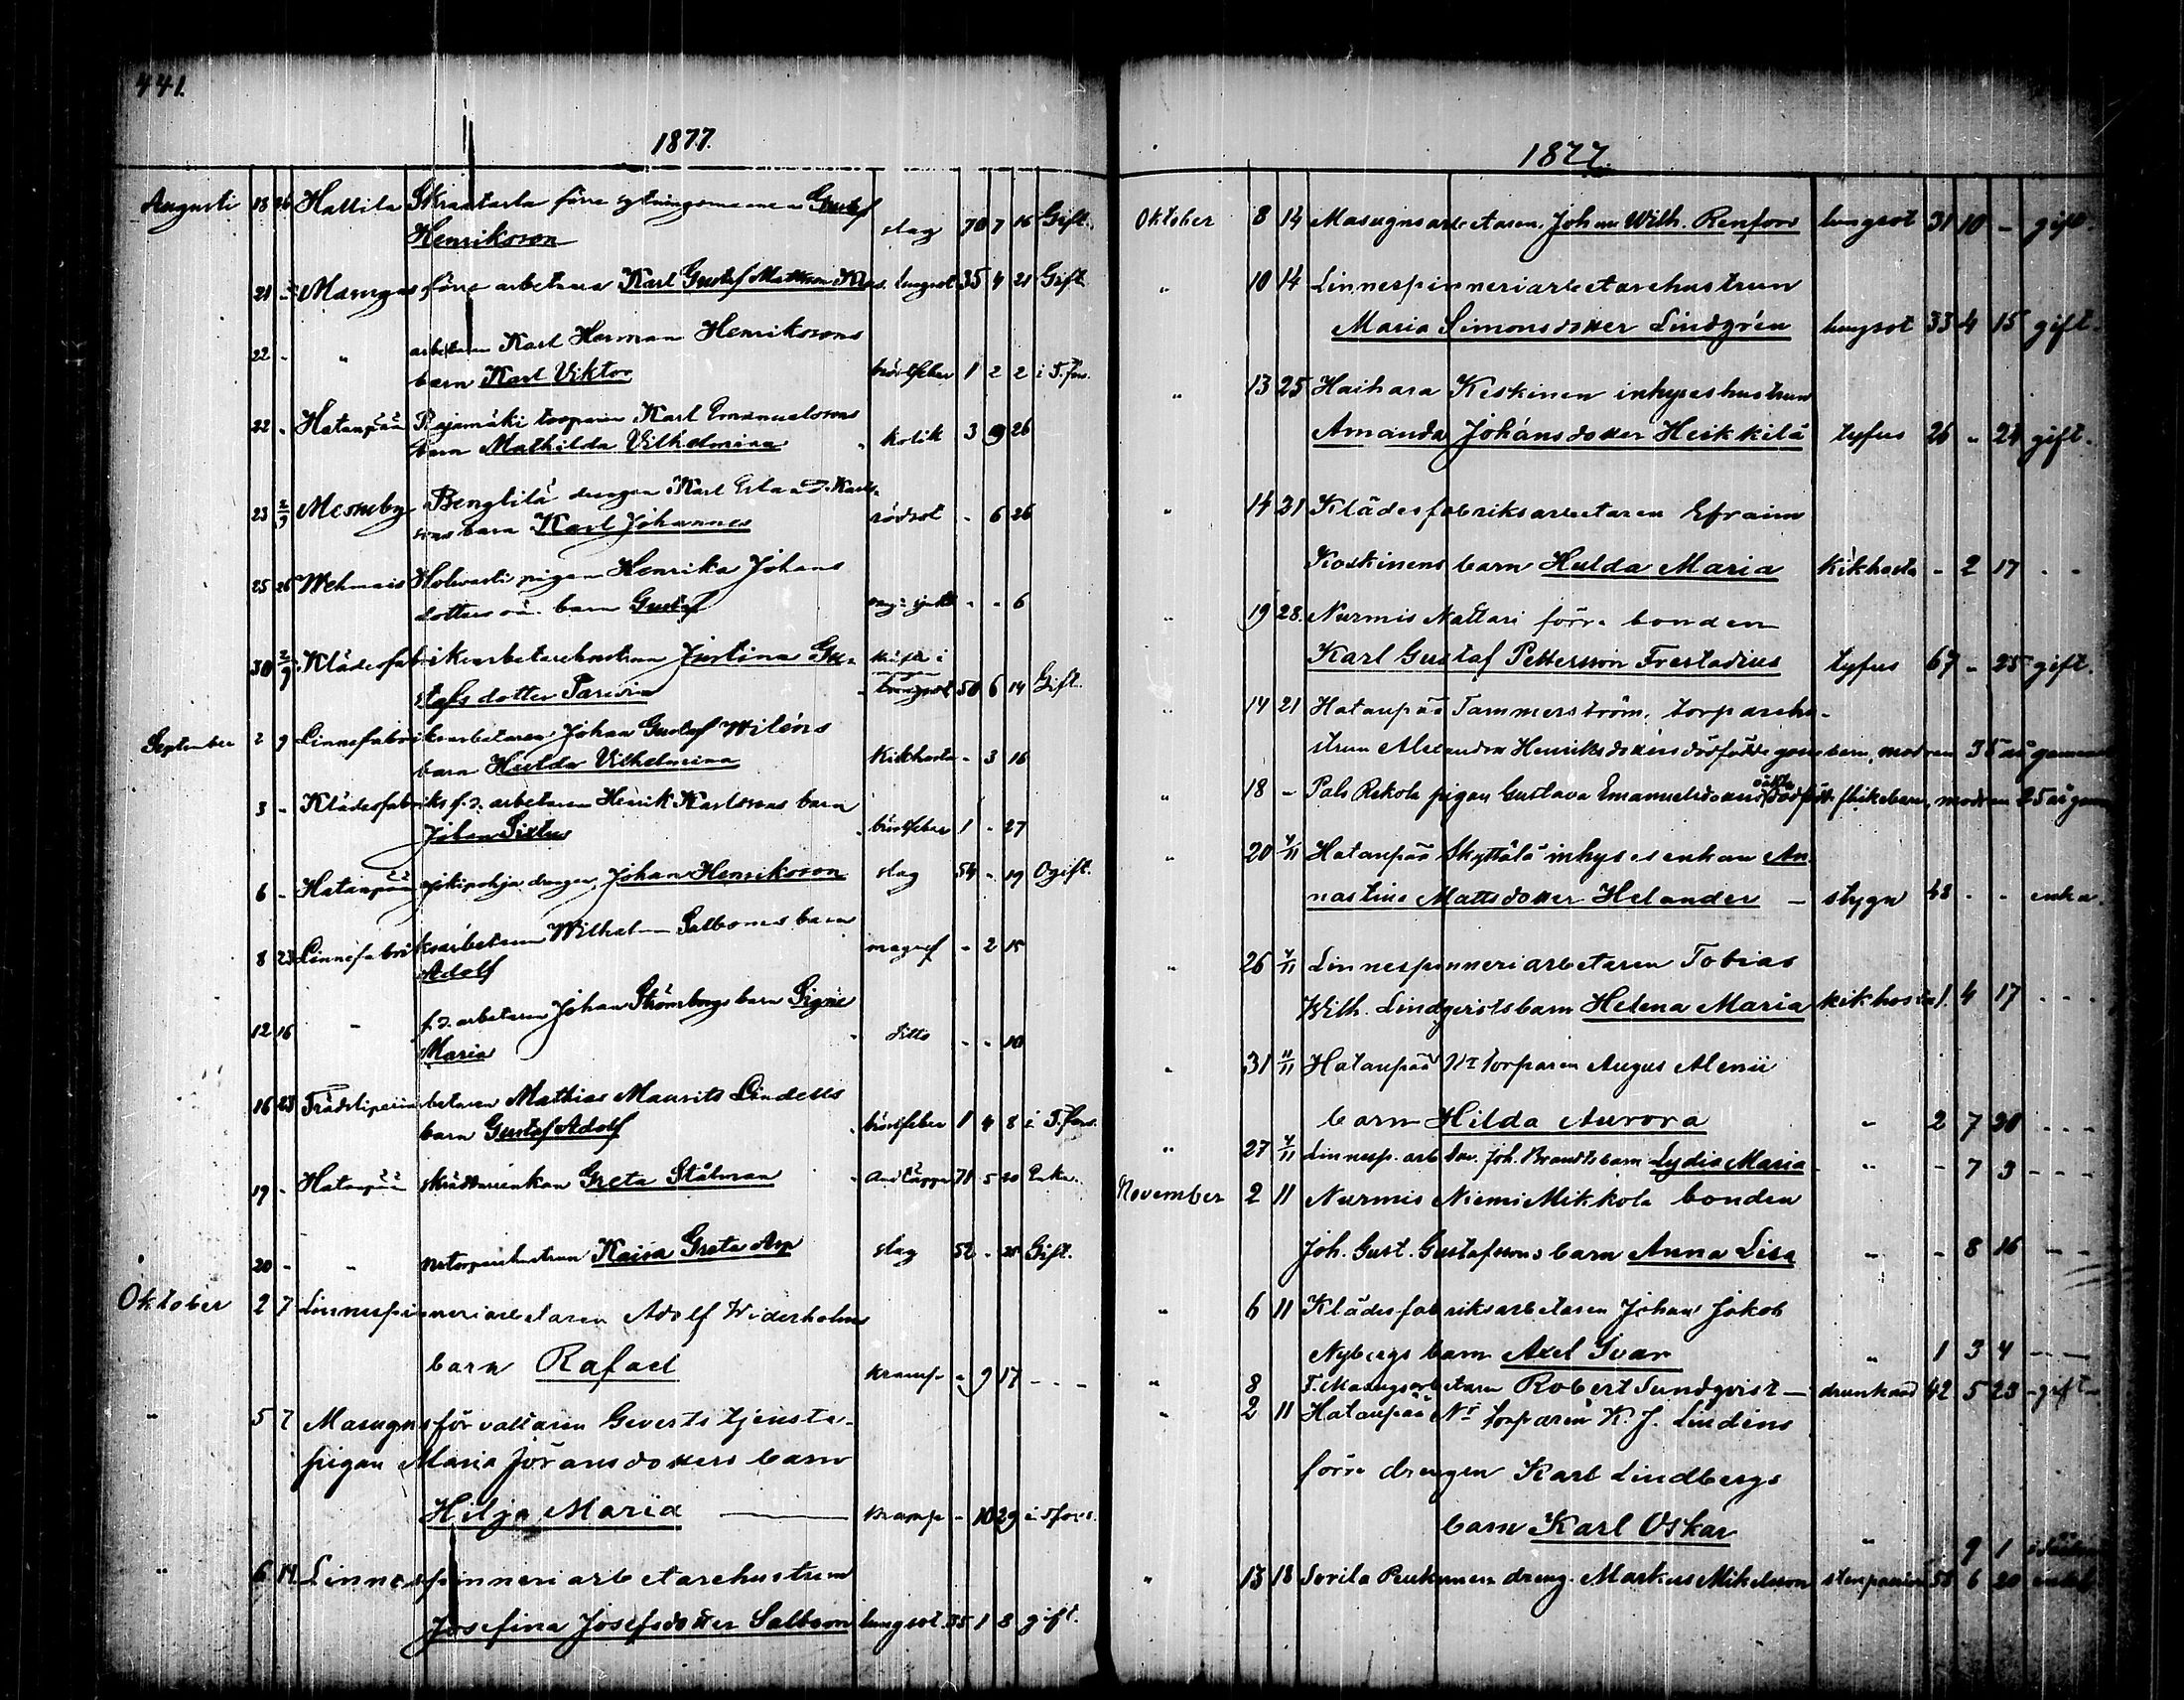 441.
1877.
Augusti 18 26 Hallila Skraatarla förre sytningsmannen Gustaf
Henriksson slag 70 7 16 Gift.
21 - Masugns förre arbetaren Karl Gustaf Mattsson lungsot 35 4 21 Gift.
22 - " arbetaren Karl Herman Henrikssons
barn Karl Viktor bröstfeber 1 2 2 i T.fors.
22 - Hatanpää Rajamäki torparen Karl Emanuelssons
barn Mathilda Vilhelmina kolik 3 9 26
23 2/9 Messuby Bengtilä drengen Karl Karls-
sons barn Karl Johannes rödsot - 6 26
25 26 Wehmais Holvasti pigan Henrika Johans
dotters oä. barn Gustaf - - 6
30 2/9 Klädesfabriksarbetarehustrun Justina Gu-
stafsdotter kräfta i magen 50 6 14 Gift.
September 2 9 Linnefabriksarbetaren Johan Gustaf Wiléns
barn Hulda Vilhelmina Kikhosta - 3 16
3 - Klädesfabriks f.d. arbetaren Henrik Karlssons barn
Johan Sixtus bröstfeber 1 - 27
6 - Hatanpää drengen Johan Henriksson slag 54 - 19 Ogift.
8 23 Linnefabriksarbetaren Wilhelm Salboms barn
Adolf magref - 2 15
12 16 - f.d. arbetaren Johan Strömbergs barn Signe
Maria ditto - - 10
16 23 Trädsliperiarbetaren Mathias Maurits Lindells
barn Gustaf Adolf bröstfeber 1 4 8 i T.fors.
19 - Hatanpää skräddarienkan Greta Stålman Andtäppa 71 5 20 Enka.
20 - - Kaisa Greta Asp slag 52 - 28 Gift.
Oktober 2 7 Linnespinneriarbetaren Adolf Widerholms
barn Rafael kramp - 9 17 - - -
" 5 7 Masugnsförvaltaren Geverts tjenste-
pigan Maria Göransdotters barn
Hilja Maria kramp - 10 29 i T.fors.
" 6 14. Linnespinneriarbetarehustrun
Josefina Josefsdotter Salbom lungsot. 35 1 8 gift.
1877.
Oktober 8 14 Masugnsarbetaren Johan Wilh. Renfors lungsot 31 10 - gift.
" 10 14 Linnespinneriarbetarehustrun
Maria Simonsdotter Lindgrén lungsot 33 4 15 gift.
" 13 25 Haihara Keskinen inhyseshustrun
Amanda Johansdotter Heikkilä tyfus 26 - 24 gift.
" 14 21 Klädesfabriksarbetaren Efraim
Koskinens barn Hulda Maria Kikhosta - 2 17 - -
" 19 28. Nurmis Nattari förre bonden
Karl Gustaf Pettersson Frestadius tyfus 67 - 25 gift.
" 14 21 Hatanpää Tammerström, torparehu-
strun Alexandra Henriksdotters dödfödde gossebarn, modren 35 år gammal
" 18 - Pals Rekola pigan Gustava Emanuelsdotters oäkta dödfödt flickebarn, modren 25 år gammal
" 20 4/11 Hatanpää Skyttälä inhysesenkan An-
nastina Mattsdotter Helander - stygn 48 - - enka.
" 26 4/11 Linnespinneriarbetaren Tobias
Wilh. Lindqvists barn Helena Maria kikhosta 1. 4 17 - - -
" 31 11/11 Hatanpää Nr torparen Augus Alenii
barn Hilda Aurora " 2 7 30 - - -
" 27 4/11 Linnesp. arb. Joh. Brandts barn Lydia Maria " - 7 3 - - -
November 2 11 Nurmis NiemiMikkola bonden
Joh. Gust. Gustafssons barn Anna Lisa " - 8 16 - -
" 6 11 Klädesfabriksarbetaren Johan Jakob
Nybergs barn Axel Ivar " 1 3 4 - -
" 8 F. Masugnsarbetaren Robert Sundqvist - drunknad 42 5 23 - gift -
" 2 11 Hatanpää Nr torparen K. J. Lindéns
förre drengen Karl Lindbergs
barn Karl Oskar " 9 1
" 13 18 Sorila Penkunen dreng. Markus Mikelsson 58 6 20